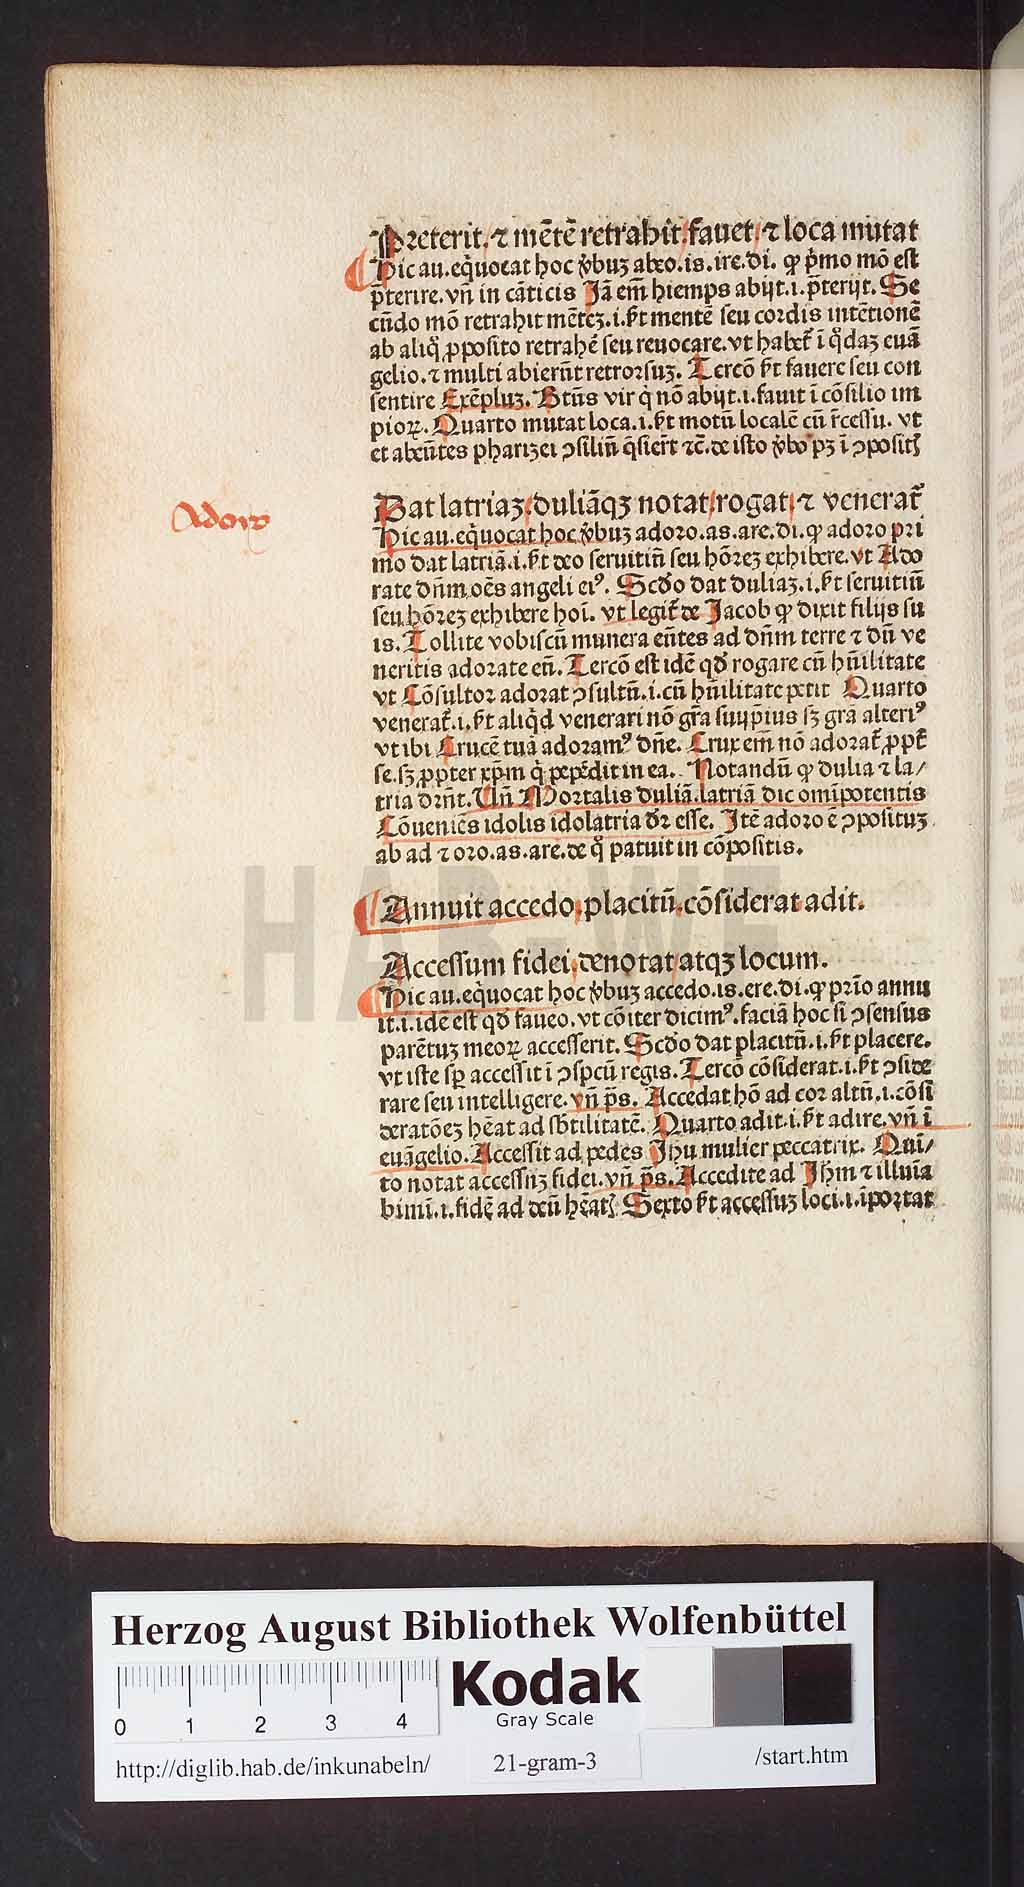 Preterit. ⁊ mētē retrahit. fauet. ⁊ loca mutat
Hic au. eq̇uocat hoc v̓buʒ abeo. is. ire. di. ꝙ p̓mo mō est
p̄terire. vn̄ in cāticis Jā em̄ hiemps abijt. i. p̄terijt. Se
cūdo mō retrahit mētēʒ. i. ſ̓t mentē seu cordis intētionē
ab aliq̊ ꝓposito retrahē seu reuocare. vt habet᷑ ī q̊daʒ euā
gelio. ⁊ multi abierūt retrorsuʒ. Tercō ſ̓t fauere seu con
sentire Exēpluʒ. Btūs vir q̇ nō abijt. i. fauit ī cōsilio im
pioꝝ. Quarto mutat loca. i. ſ̓t motū localē cū r̄cessu. vt
et abeūtes pharizei ꝯsiliū q̄sier̄t ⁊c̄. de isto v̓bo pʒ ī ꝯposit
Dat latriaʒ. duliāqʒ notat. rogat. ⁊ venerat᷑
Hic au. eq̇uocat hoc v̓buʒ adoro. as. are. di. ꝙ adoro pri
mo dat latriā. i. ſ̓t deo seruitiū seu hōreʒ exhibere. vt Ado
rate dn̄m oēs angeli ei⁹. Scd̓o dat duliaʒ. i. ſ̓t seruitiū
seu hōreʒ exhibere hoī. vt legit᷑ de Jacob ꝙ dixit filijs su
is. Tollite vobiscū munera eūtes ad dn̄m terre ⁊ dū ve
neritis adorate eū. Tercō est idē qd̓ rogare cū hūilitate
vt Cōsultor adorat ꝯsultū. i. cū hūilitate petit Quarto
venerat᷑. i. ſ̓t aliq̇d venerari nō gr̄a suijp̄ius sʒ gr̄a alteri⁹
vt ibi Crucē tuā adoram⁹ dn̄e. Crux em̄ nō adorat᷑ ꝓpt᷑
se. sʒ ꝓpter xp̄m q̇ pepēdit in ea. Notandū ꝙ dulia ⁊ la/
tria dr̄nt. Vn̄ Mortalis duliā. latriā dic omīpotentis
Cōueniēs idolis idolatria dr̄ esse. Jtē adoro ē ꝯposituʒ
ab ad ⁊ oro. as. are. de q̊ patuit in cōpositis.
Adoro
Annuit accedo. placitū. cōsiderat adit.
Accessum fidei. denotat atqʒ locum.
Hic au. eq̇uocat hoc v̓buʒ accedo. is. ere. di. ꝙ prīo annu
it. i. idē est qd̓ faueo. vt cōiter dicim⁹. faciā hoc si ꝯsensus
parētuʒ meoꝝ accesserit. Scd̓o dat placitū. i. ſ̓t placere.
vt iste sp̄ accessit ī ꝯspcū regis. Tercō cōsiderat. i. ſ̓t ꝯside
rare seu intelligere. vn̄ p̄s. Accedat hō ad cor altū. i. cōsi
deratōeʒ heat ad sb̓tilitatē. Quarto adit. i. ſ̓t adire. vn̄ ī
euāgelio. Accessit ad pedes Jhu mulier peccatrix. Quī/
to notat accessuʒ fidei. vn̄ p̄s. Accedite ad Jhm ⁊ illumīa
bimī. i. fidē ad deū
Sexto ſ̓t accessuʒ loci. i. īportat
HAB-WF
Herzog August Bibliothek Wolfenbüttel
0 1 2 3 4
Kodak
Gray Scale
http://diglib.hab.de/inkunabeln/
21-gram-3
/start.htm